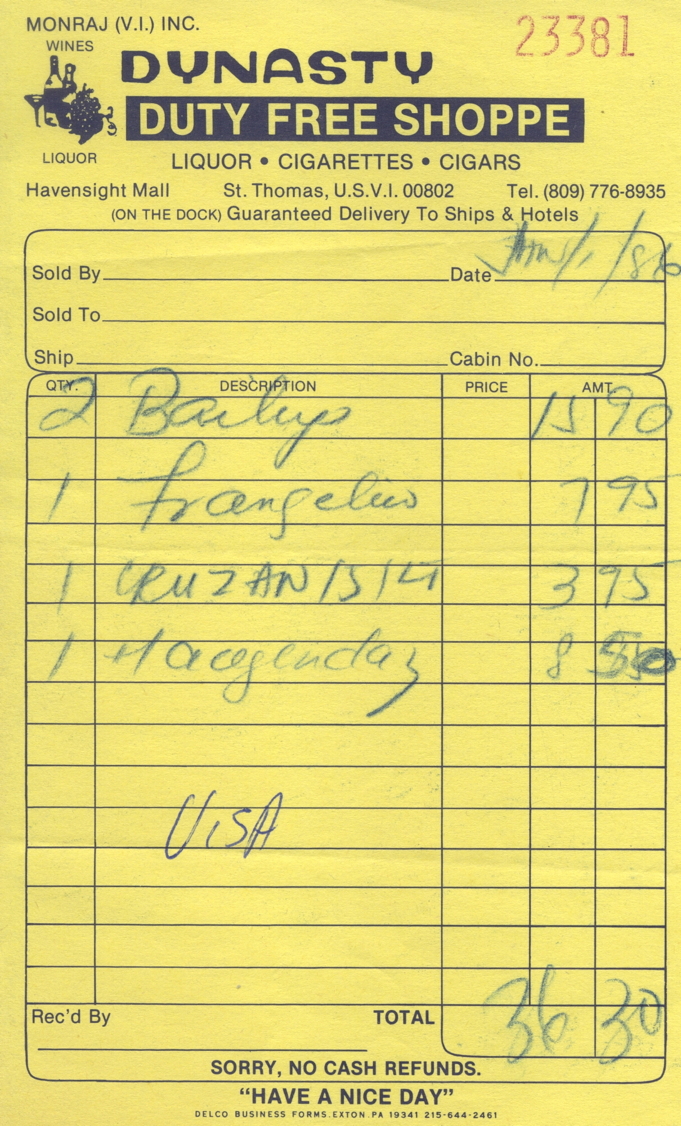 MONRAJ (V.I.) INC.
23381
WINES
DYNASTY
DUTY FREE SHOPPE
LIQUOR
LIQUOR • CIGARETTES • CIGARS
Havensight Mall St. Thomas, U.S.V.I. 00802 Tel. (809) 776-8935
(ON THE DOCK) Guaranteed Delivery To Ships & Hotels
Sold By Date /86
Sold To
Ship Cabin No.
QTY. DESCRIPTION PRICE AMT.
2 Baileys 15 90
1 Frangelico 7 95
1 CRUZAN 151 LT 3 95
1 Haagendaz 8 50
VISA
Rec'd By TOTAL 36 30
SORRY, NO CASH REFUNDS.
“HAVE A NICE DAY”
DELCO BUSINESS FORMS. EXTON. PA 19341 215-644-2461